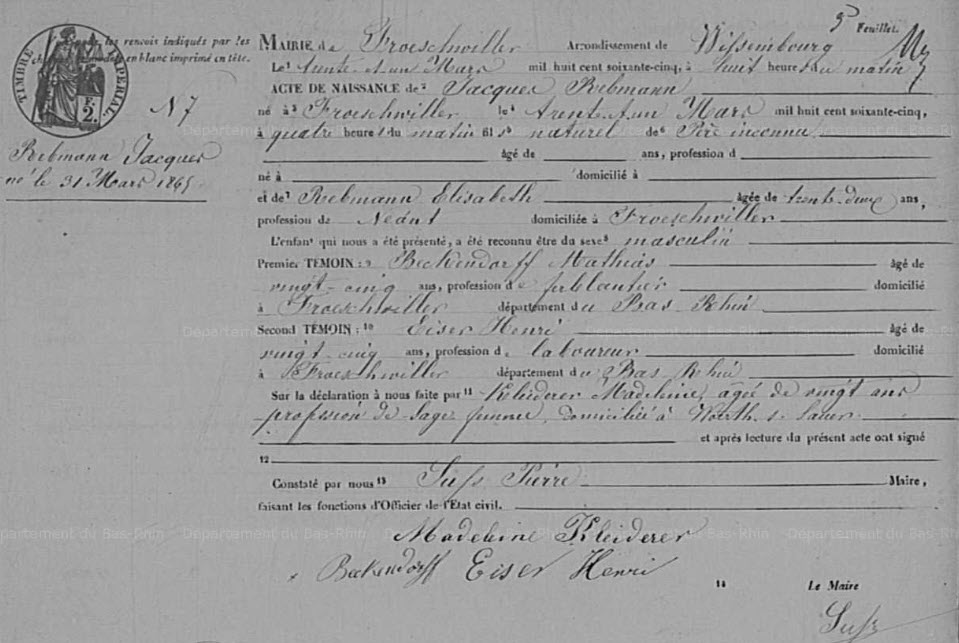 5 Feuillet.
TIMBRE IMPERIAL
F.
2.
les renvois indiqués par les
en blanc imprimé en tête.
N 7
Rebmann Jacques
né le 31 Mars 1865
MAIRIE de Froeschwiller Arrondissement de Wissembourg
Le¹ trente-et-un Mars mil huit cent soixante-cinq, à huit heures du matin
ACTE DE NAISSANCE de² Jacques Rebmann
né à³ Froeschwiller le⁴ trente-et-un Mars mil huit cent soixante-cinq,
à quatre heures du matin fils⁵ naturel de⁶ Père inconnu
âgé de ans, profession d
né à domicilié à
et de⁷ Rebmann Elisabeth âgée de trente-deux ans,
profession de Néant domiciliée à Froeschwiller
L'enfant qui nous a été présenté, a été reconnu être du sexe⁸ masculin
Premier TÉMOIN :⁹ Beckendorff Mathias âgé de
vingt-cinq ans, profession de ferblantier domicilié
à Froeschwiller département du Bas-Rhin
Second TÉMOIN :¹⁰ Eiser Henri âgé de
vingt-cinq ans, profession de laboureur domicilié
à Froeschwiller département du Bas-Rhin
Sur la déclaration à nous faite par¹¹ Kleiderer Madeleine, âgée de vingt ans
profession de Sage femme, domiciliée à Woerth s. Sauer
et après lecture du présent acte ont signé
¹²
Constaté par nous¹³ Suss Pierre Maire,
faisant les fonctions d'Officier de l'Etat civil.
Madeleine Kleiderer
Beckendorff Eiser Henri
¹⁴ Le Maire
Suss
Département du Bas-Rhin